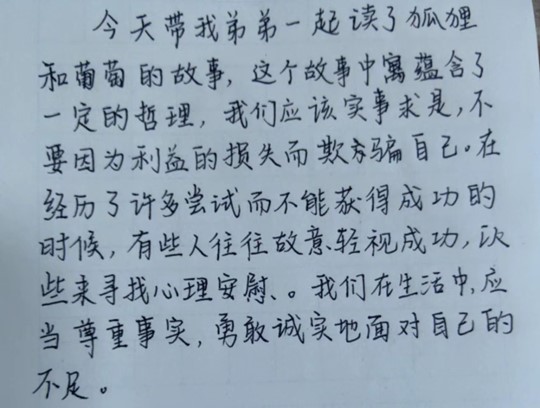 今天带我弟弟一起读了狐狸
和葡萄的故事，这个故事中寓蕴含了
一定的哲理，我们应该实事求是，不
要因为利益的损失而欺骗自己。在
经历了许多尝试而不能获得成功的
时候，有些人往往故意轻视成功，以
些来寻找心理安慰、。我们在生活中，应
当尊重事实，勇敢诚实地面对自己的
不足。